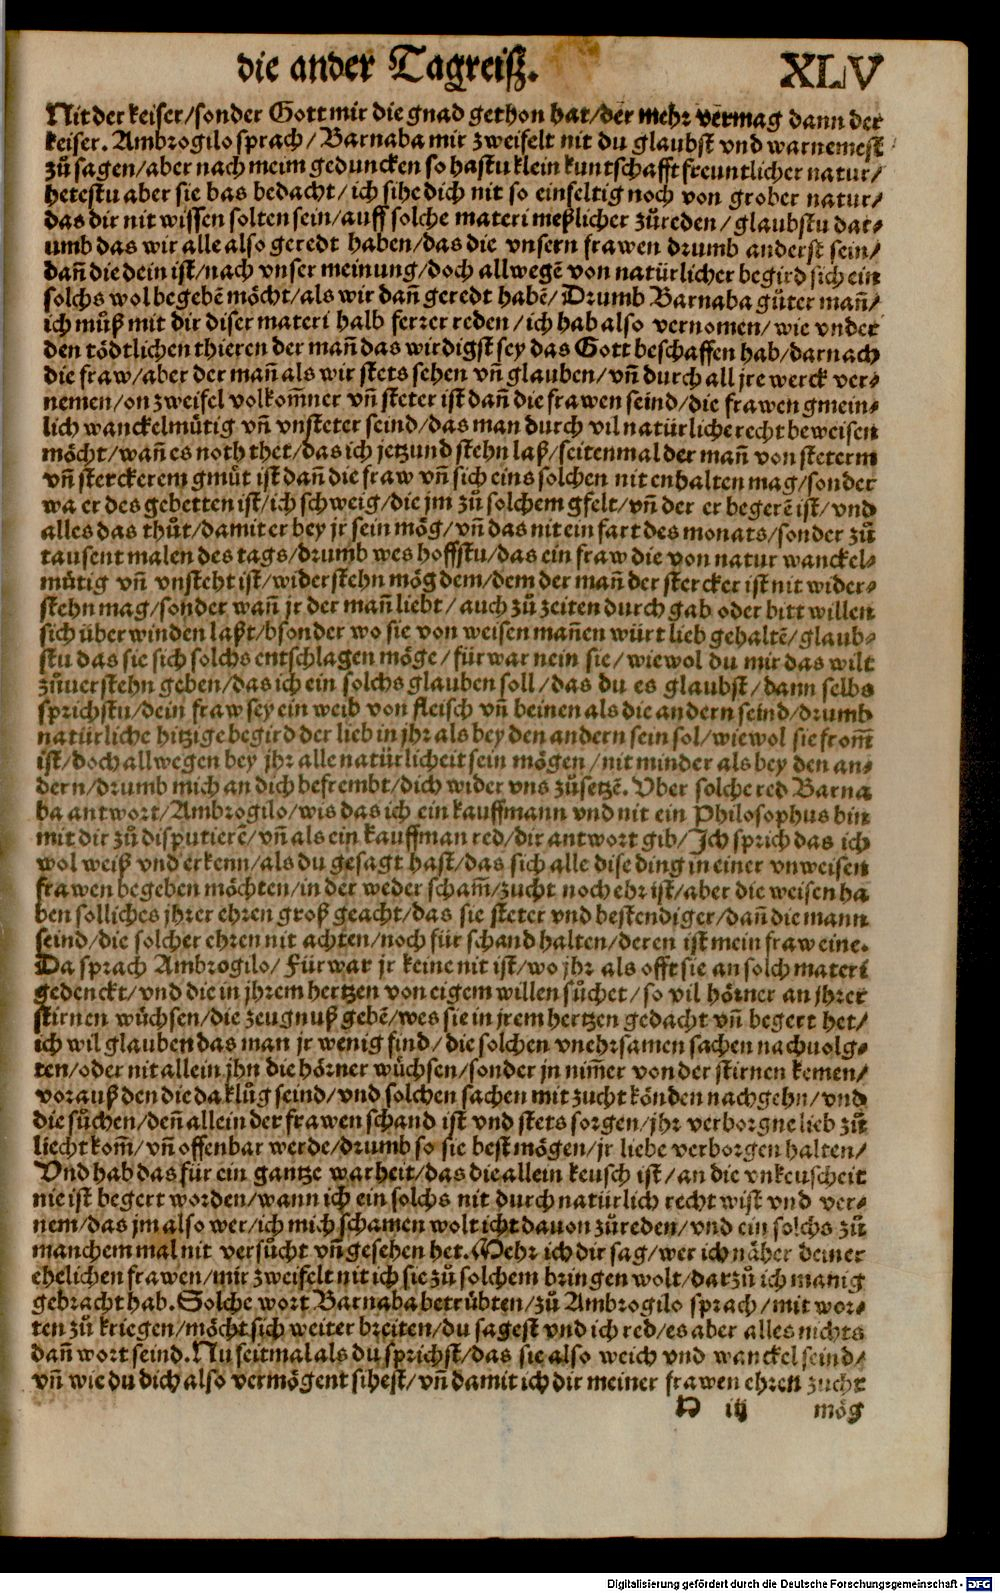 die ander Tagreisz.
XLV
Nit der keiser/sonder Gott mir die gnad gethon hat/der mehr vermag dann der
keiser. Ambrogilo sprach/ Barnaba mir zweifelt nit du glaubst vnd warnemest
zů sagen/aber nach meim geduncken so hastu klein kuntschafft freuntlicher natur/
hetestu aber sie bas bedacht/ ich sihe dich nit so einfeltig noch von grober natur/
das dir nit wissen solten sein/auff solche materi meßlicher zůreden/ glaubstu dar⸗
umb das wir alle also geredt haben/das die vnsern frawen drumb anderst sein/
dañ die dein ist/nach vnser meinung/doch allwegē von natürlicher begird sich ein
solchs wol begebē möcht/als wir dañ geredt habē/ Drumb Barnaba gůter mañ/
ich můß mit dir diser materi halb ferrer reden/ich hab also vernomen/ wie vnder
den tödtlichen thieren der mañ das wirdigst sey das Gott beschaffen hab/darnach
die fraw/aber der mañ als wir stets sehen vñ glauben/vñ durch all jre werck ver⸗
nemen/on zweifel volkom̃ner vñ steter ist dañ die frawen seind/die frawen gmein⸗
lich wanckelmůtig vñ vnsteter seind/das man durch vil natürliche recht beweisen
möcht/wañ es noth thet/das ich jetzund stehn laß/seitenmal der mañ von steterm
vñ sterckerem gmůt ist dañ die fraw vñ sich eins solchen nit enhalten mag/sonder
wa er des gebetten ist/ich schweig/die jm zů solchem gfelt/vñ der er begerē ist/vnd
alles das thůt/damit er bey jr sein mög/vñ das nit ein fart des monats/sonder zů
tausent malen des tags/drumb wes hoffstu/das ein fraw die von natur wanckel⸗
můtig vñ vnsteht ist/widerstehn mög dem/dem der mañ der stercker ist nit wider⸗
stehn mag/sonder wañ jr der mañ liebt/ auch zů zeiten durch gab oder bitt willen
sich überwinden laßt/bsonder wo sie von weisen mañen würt lieb gehaltē/glaub⸗
stu das sie sich solchs entschlagen möge/fürwar nein sie/wiewol du mir das wilt
zůuerstehn geben/das ich ein solchs glauben soll/das du es glaubst/dann selbs
sprichstu/dein fraw sey ein weib von fleisch vñ beinen als die andern seind/drumb
natürliche hitzige begird der lieb in jhr als bey den andern sein sol/wiewol sie from̃
ist/doch allwegen bey jhr alle natürlicheit sein mögen/nit minder als bey den an⸗
dern/drumb mich an dich befrembt/dich wider vns zůsetzē. Vber solche red Barna
ba antwort/Ambrogilo/wis das ich ein kauffmann vnd nit ein Philosophus bin
mit dir zů disputierē/vñ als ein kauffman red/dir antwort gib/Ich sprich das ich
wol weiß vnd erkenn/als du gesagt hast/das sich alle dise ding in einer vnweisen
frawen begeben möchten/in der weder scham̃/zucht noch ehr ist/aber die weisen ha
ben solliches jhrer ehren groß geacht/das sie steter vnd bestendiger/dañ die mann
seind/die solcher ehren nit achten/noch für schand halten/deren ist mein fraw eine.
Da sprach Ambrogilo/ Fürwar jr keine nit ist/wo jhr als offt sie an solch materi
gedenckt/vnd die in jhrem hertzen von eigem willen sůchet/so vil hörner an jhrer
stirnen wůchsen/die zeugnuß gebē/wes sie in jrem hertzen gedacht vñ begert het/
ich wil glauben das man jr wenig find/die solchen vnehrsamen sachen nachuolg⸗
ten/oder nit allein jhn die hörner wüchsen/sonder jn nim̃er von der stirnen kemen/
vorauß den die da klůg seind/vnd solchen sachen mit zucht könden nachgehn/vnd
die sůchen/deñ allein der frawen schand ist vnd stets sorgen/jhr verborgne lieb zů
liecht kom̃/vñ offenbar werde/drumb so sie best mögen/jr liebe verborgen halten/
Vnd hab das für ein gantze warheit/das die allein keusch ist/an die vnkeuscheit
nie ist begert worden/wann ich ein solchs nit durch natürlich recht wist vnd ver⸗
nem/das jm also wer/ich mich schamen wolt icht dauon zůreden/vnd ein solchs zů
manchem mal nit versůcht vñ gesehen het. Mehr ich dir sag/wer ich näher deiner
ehelichen frawen/mir zweifelt nit ich sie zů solchem bringen wolt/darzů ich manig
gebracht hab. Solche wort Barnaba betrůbten/zů Ambrogilo sprach/mit wor⸗
ten zů kriegen/möcht sich weiter breiten/du sagest vnd ich red/es aber alles nichts
dañ wort seind. Nu seitmal als du sprichst/das sie also weich vnd wanckel seind/
vñ wie du dich also vermögent sihest/vñ damit ich dir meiner frawen ehren zucht
H iij mög
Digitalisierung gefördert durch die Deutsche Forschungsgemeinschaft - DFG